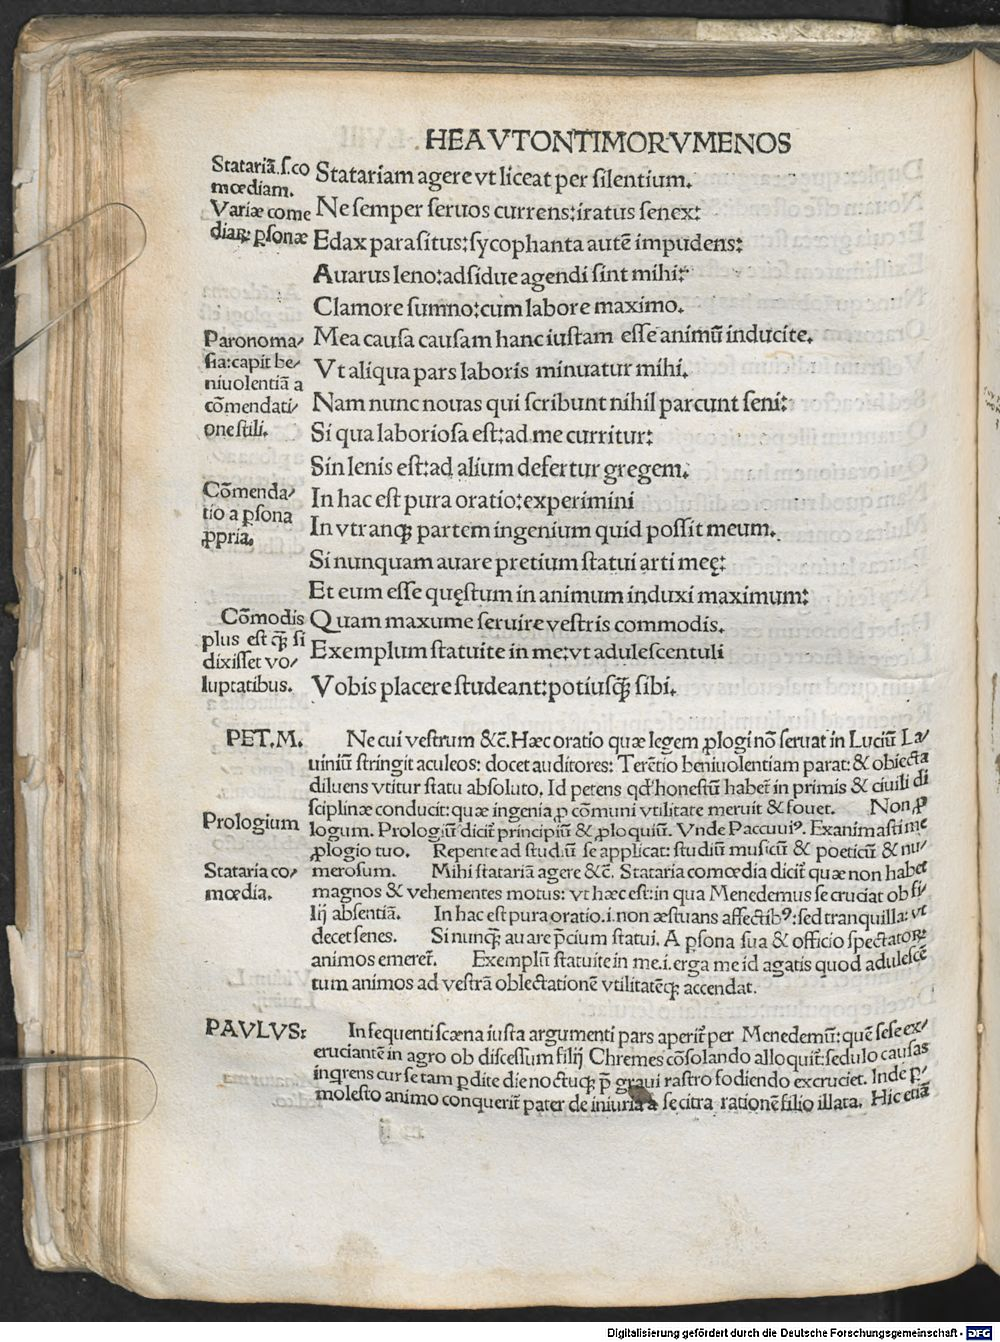 HEAVTONTIMORVMENOS
Statariã.ſ.co
mœdiam.
Variæ come
diaꝝ: ꝑſonæ
Statariam agere vt liceat per ſilentium.
Ne ſemper ſeruos currens: iratus ſenex:
Edax paraſitus: ſycophanta autẽ impudens:
Auarus leno: adſidue agendi ſint mihi:
Clamore ſumno: cum labore maximo.
Mea cauſa cauſam hanc iuſtam eſſe animũ inducite.
Vt aliqua pars laboris minuatur mihi.
Nam nunc nouas qui ſcribunt nihil parcunt ſeni:
Si qua laborioſa eſt: ad me curritur:
Sin lenis eſt: ad alium defertur gregem.
Paronoma/
ſia: capit be/
niuolentiã a
cõmendati/
one ſtili.
In hac eſt pura oratio: experimini
In vtranqꝫ partem ingenium quid poſſit meum.
Si nunquam auare pretium ſtatui arti meę:
Et eum eſſe quęſtum in animum induxi maximum:
Cõmenda/
tio a ꝑſona
ꝓpria.
Quam maxume ſeruire veſtris commodis.
Exemplum ſtatuite in me: vt aduleſcentuli
Vobis placere ſtudeant: potiuſqꝫ̃ ſibi.
Cõmodis
plus eſt qꝫ̃ ſi
dixiſſet vo/
luptatibus.
PET. M. Ne cui veſtrum &c̃. Hæc oratio quæ legem ꝓlogi nõ ſeruat in Luciũ La/
uiniũ ſtringit aculeos: docet auditores: Terẽtio beniuolentiam parat: & obiecta
diluens vtitur ſtatu abſoluto. Id petens qd' honeſtũ habet̃ in primis & ciuili di
ſciplinæ conducit: quæ ingenia ꝓ cõmuni vtilitate meruit & fouet. Non ꝓ
Prologium
logum. Prologiũ dicit̃ principiũ & ꝓloquiũ. Vnde Paccuuiꝰ. Exanimaſti me
ꝓlogio tuo. Repente ad ſtudiũ ſe applicat: ſtudiũ muſicũ & poeticũ & nu/
Stataria co/
mœdia.
meroſum. Mihi ſtatariã agere &c̃. Stataria comœdia dicit̃ quæ non habet
magnos & vehementes motus: vt hæc eſt: in qua Menedemus ſe cruciat ob fi/
lij abſentiã. In hac eſt pura oratio. i. non æſtuans affectibꝰ: ſed tranquilla: vt
decet ſenes. Si nunqꝫ̃ auare p̃cium ſtatui. A ꝑſona ſua & officio ſpectatoꝝ
animos emeret̃. Exemplũ ſtatuite in me. i. erga me id agatis quod aduleſcẽ
tum animos ad veſtrã oblectationẽ vtilitatẽqꝫ accendat.
PAVLVS: In ſequenti ſcæna iuſta argumenti pars aperit̃ per Menedemũ: quẽ ſeſe ex/
cruciantẽ in agro ob diſceſſum filij Chremes cõſolando alloquit̃: ſedulo cauſas
inqrens cur ſe tam ꝑdite die noctuqꝫ p̃ graui raſtro fodiendo excruciet. Inde ꝑ/
moleſto animo conquerit̃ pater de iniuria a ſe citra rationẽ filio illata. Hic etiã
Digitalisierung gefördert durch die Deutsche Forschungsgemeinschaft - DFG